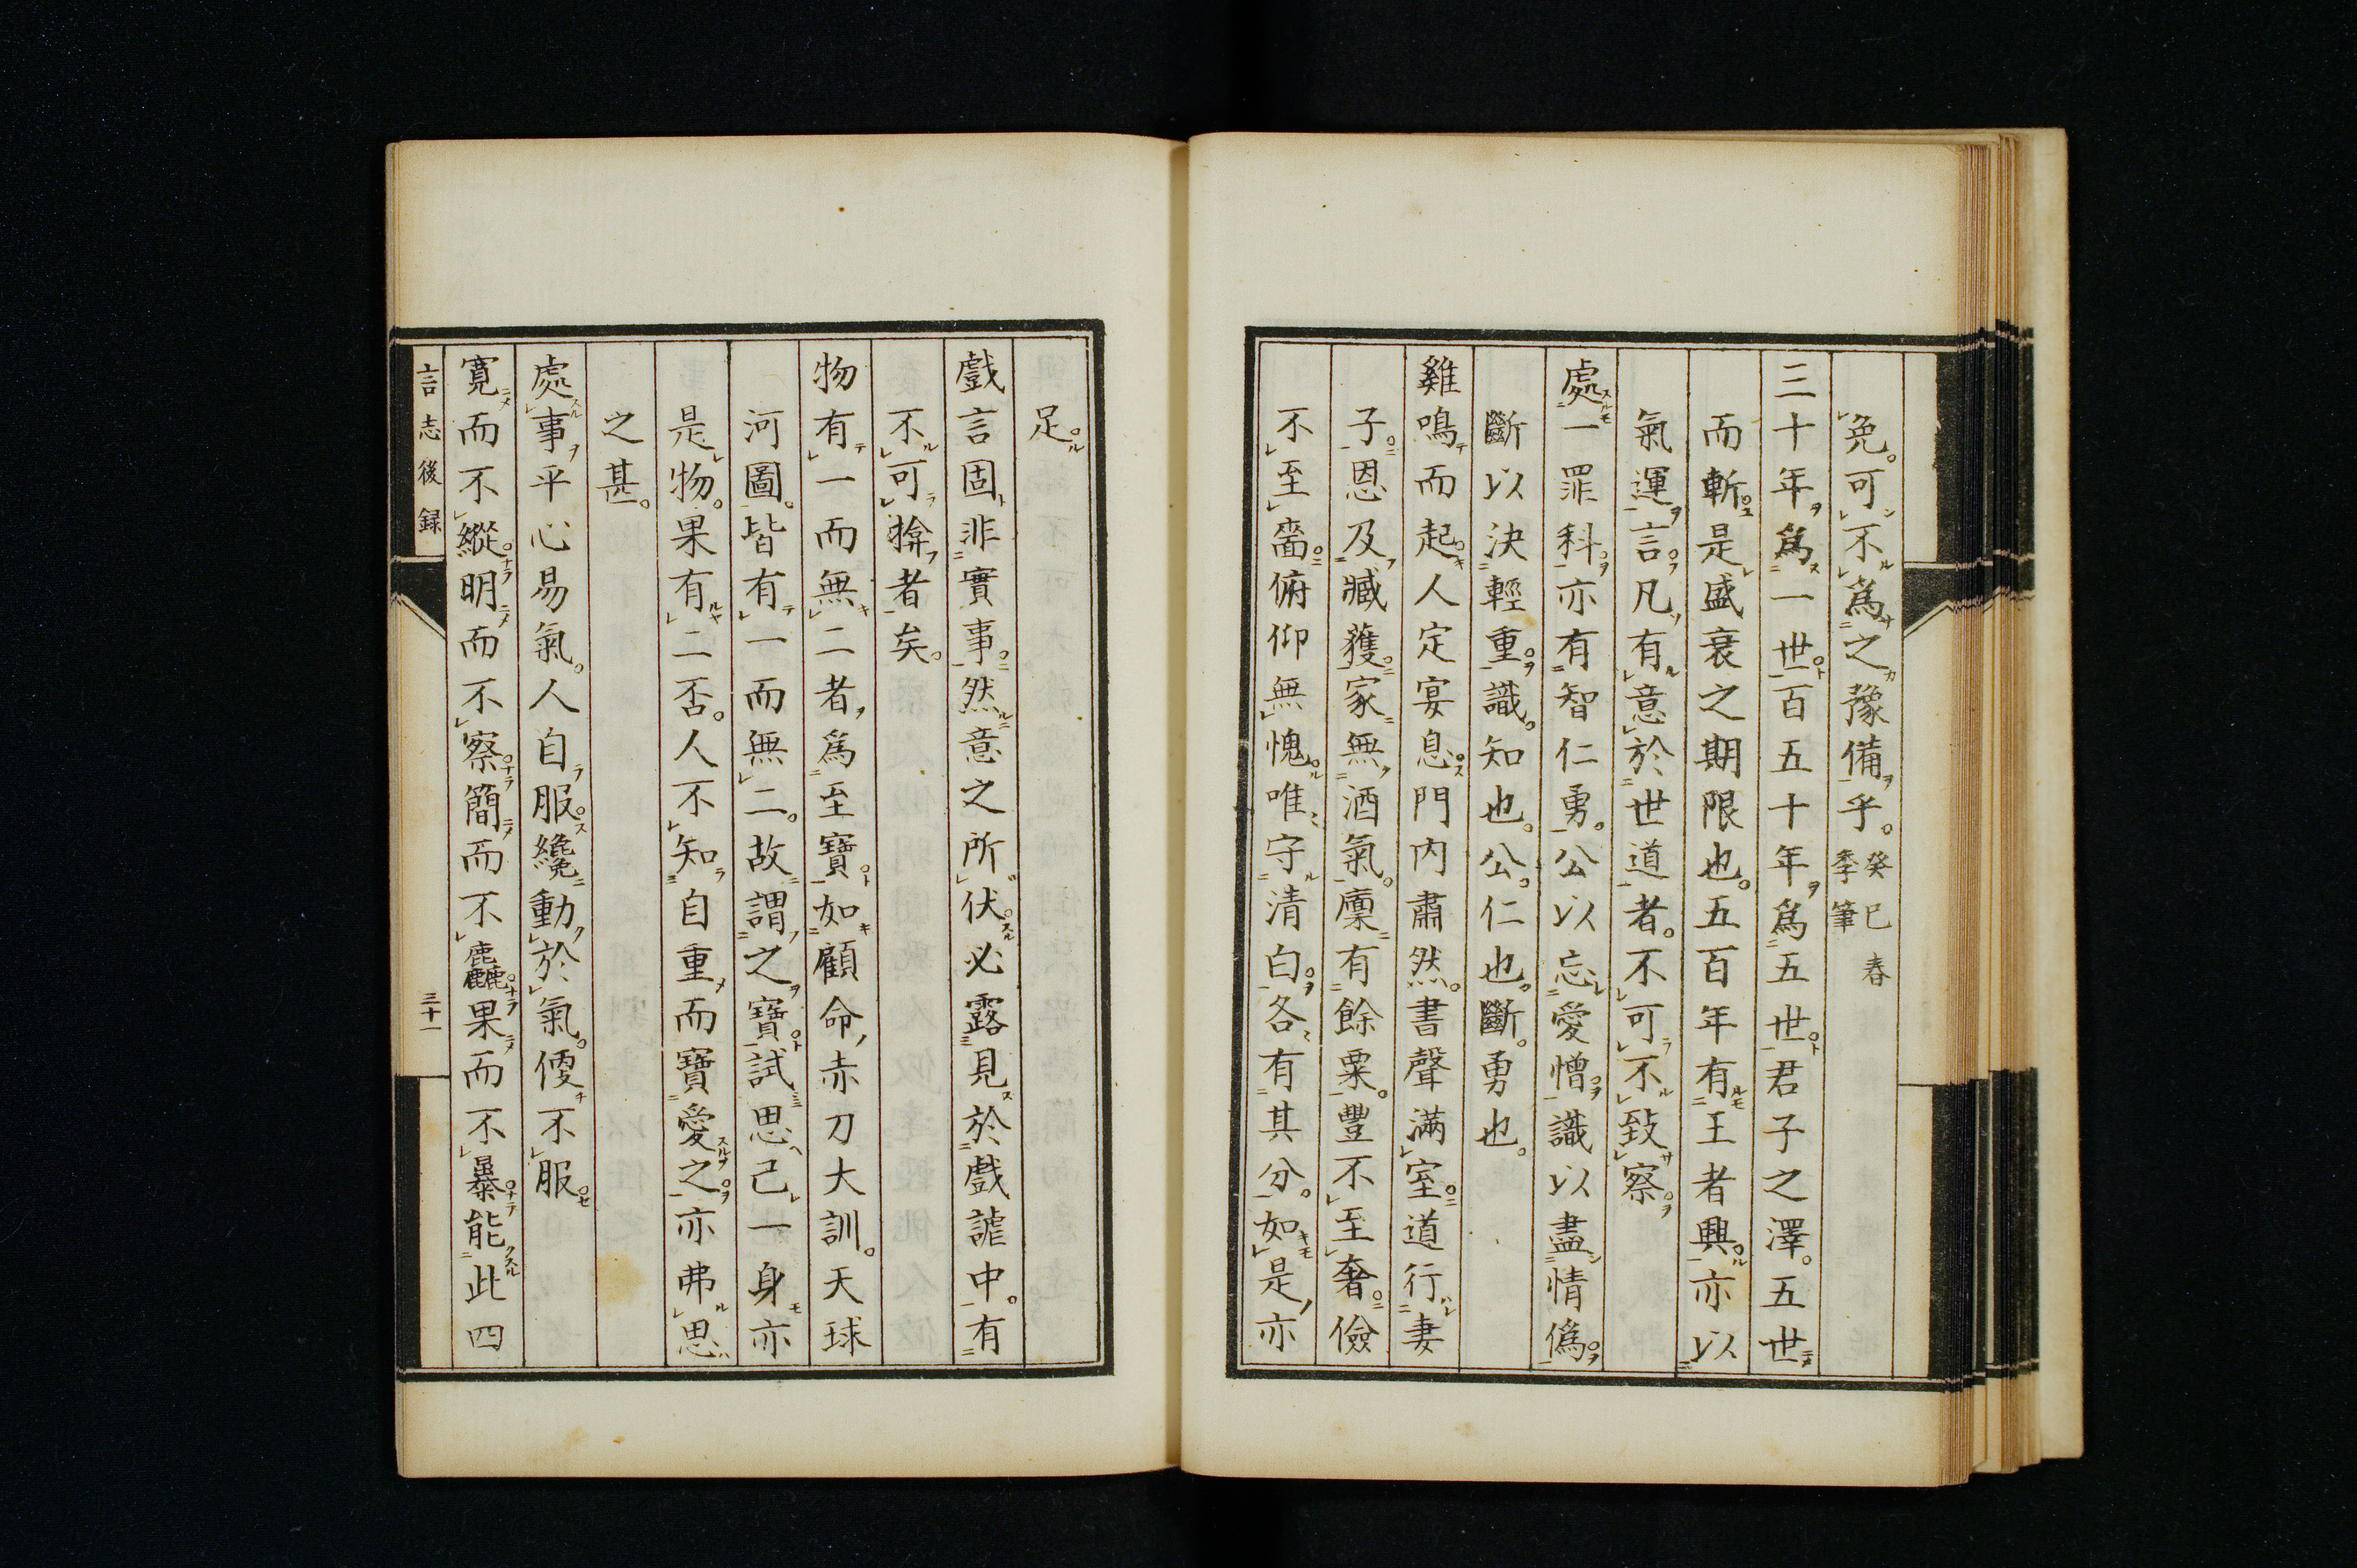 免。可不爲之豫備乎。癸巳春季筆
三十年爲一世百五十年爲五世君子之澤。五世
而斬是盛衰之期限也。五百年有王者興亦以
氣運言凡有意於世道者。不可不致察
處一罪科亦有智仁勇。公以忘愛憎識以盡情僞
斷以決輕重識。知也。公。仁也。斷。勇也。
雞鳴而起人定宴息門內肅然。書聲滿室道行妻
子恩及臧獲家無酒氣。廩有餘粟。豐不至奢儉
不至嗇俯仰無愧唯守清白各有其分。如是亦
足
戲言固非實事然意之所伏必露見於戲謔中。有
不可揜者矣。
物有一而無二者爲至寶如顧命赤刀大訓。天球
河圖。皆有一而無二。故謂之寶試思己一身亦
是物。果有二否。人不知自重而寶愛之亦弗思
之甚。
處事平心易氣。人自服纔動於氣。便不服
寬而不縱明而不察簡而不麤果而不暴能此四
言志後録
三十一